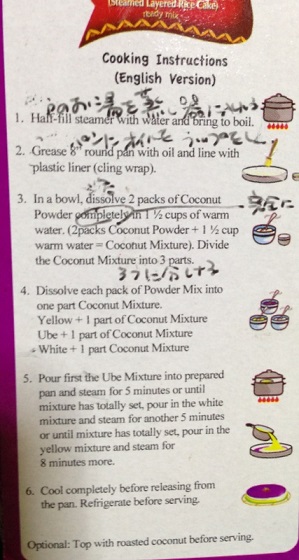 (Steamed Layered Rice Cake)
ready mix
Cooking Instructions
(English Version)
1. Half-fill steamer with water and bring to boil.
2. Grease 8" round pan with oil and line with
plastic liner (cling wrap).
3. In a bowl, dissolve 2 packs of Coconut
完全に
Powder completely in 1 ½ cups of warm
water. (2packs Coconut Powder + 1 ½ cup
warm water = Coconut Mixture). Divide
the Coconut Mixture into 3 parts.
3つに分ける
4. Dissolve each pack of Powder Mix into
one part Coconut Mixture.
Yellow + 1 part of Coconut Mixture
Ube + 1 part of Coconut Mixture
White + 1 part Coconut Mixture
5. Pour first the Ube Mixture into prepared
pan and steam for 5 minutes or until
mixture has totally set, pour in the white
mixture and steam for another 5 minutes
or until mixture has totally set, pour in the
yellow mixture and steam for
8 minutes more.
6. Cool completely before releasing from
the pan. Refrigerate before serving.
Optional: Top with roasted coconut before serving.